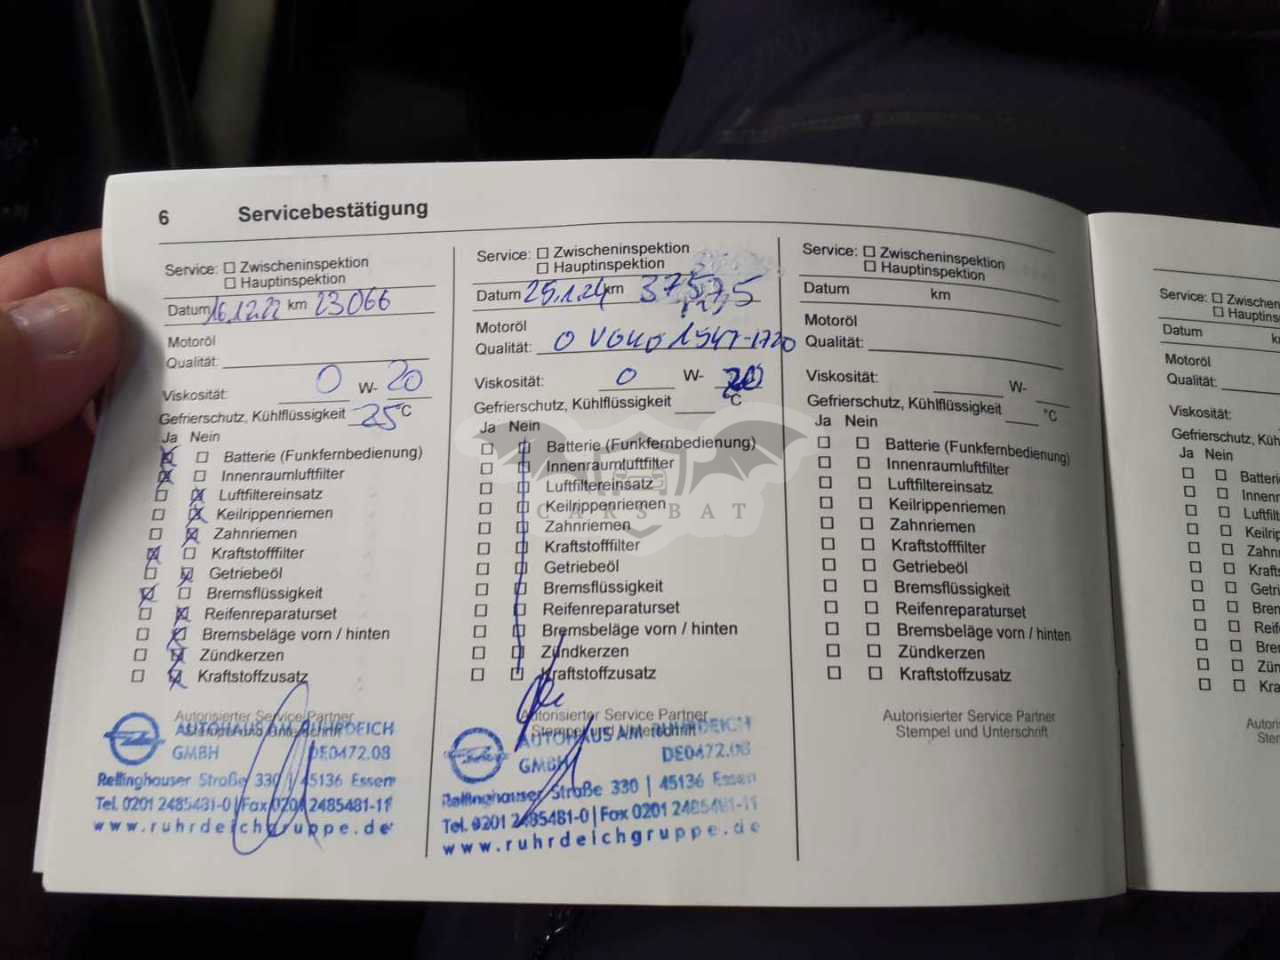 6 Servicebestätigung
Service: Zwischeninspektion
Hauptinspektion
Datum 16.12.22 km 23066
Motoröl
Qualität:
Viskosität: 0 W- 20
Gefrierschutz, Kühlflüssigkeit 25 °C
Ja Nein
Batterie (Funkfernbedienung)
Innenraumluftfilter
Luftfiltereinsatz
Keilrippenriemen
Zahnriemen
Kraftstofffilter
Getriebeöl
Bremsflüssigkeit
Reifenreparaturset
Bremsbeläge vorn / hinten
Zündkerzen
Kraftstoffzusatz
Autorisierter Service Partner
Stempel und Unterschrift
AUTOHAUS AM RUHRDEICH
GMBH DE0472.08
Rellinghauser Straße 330 | 45136 Essen
Tel. 0201 2485481-0 | Fax 0201 2485481-11
www.ruhrdeichgruppe.de
Service: Zwischeninspektion
Hauptinspektion
Datum 25.1.24 km 37575
Motoröl
Qualität:
Viskosität: 0 W- 20
Gefrierschutz, Kühlflüssigkeit °C
Ja Nein
Batterie (Funkfernbedienung)
Innenraumluftfilter
Luftfiltereinsatz
Keilrippenriemen
Zahnriemen
Kraftstofffilter
Getriebeöl
Bremsflüssigkeit
Reifenreparaturset
Bremsbeläge vorn / hinten
Zündkerzen
Kraftstoffzusatz
Autorisierter Service Partner
Stempel und Unterschrift
AUTOHAUS AM RUHRDEICH
GMBH DE0472.08
Rellinghauser Straße 330 | 45136 Essen
Tel. 0201 2485481-0 | Fax 0201 2485481-11
www.ruhrdeichgruppe.de
CARSBAT
Service: Zwischeninspektion
Hauptinspektion
Datum km
Motoröl
Qualität:
Viskosität: W-
Gefrierschutz, Kühlflüssigkeit °C
Ja Nein
Batterie (Funkfernbedienung)
Innenraumluftfilter
Luftfiltereinsatz
Keilrippenriemen
Zahnriemen
Kraftstofffilter
Getriebeöl
Bremsflüssigkeit
Reifenreparaturset
Bremsbeläge vorn / hinten
Zündkerzen
Kraftstoffzusatz
Autorisierter Service Partner
Stempel und Unterschrift
Service: Zwischeninspe
Hauptinspe
Datum k
Motoröl
Qualität:
Viskosität:
Gefrierschutz, Küh
Ja Nein
Batte
Innen
Luftfil
Keilri
Zahn
Kraft
Getri
Brem
Reife
Brem
Zün
Kra
Autori
Stem